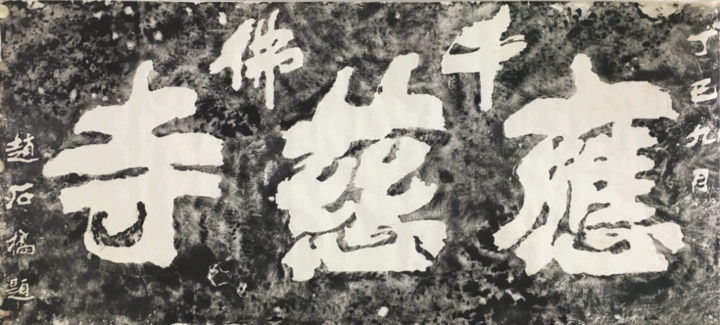 丁巳九月
千佛
應慈寺
趙石橋題